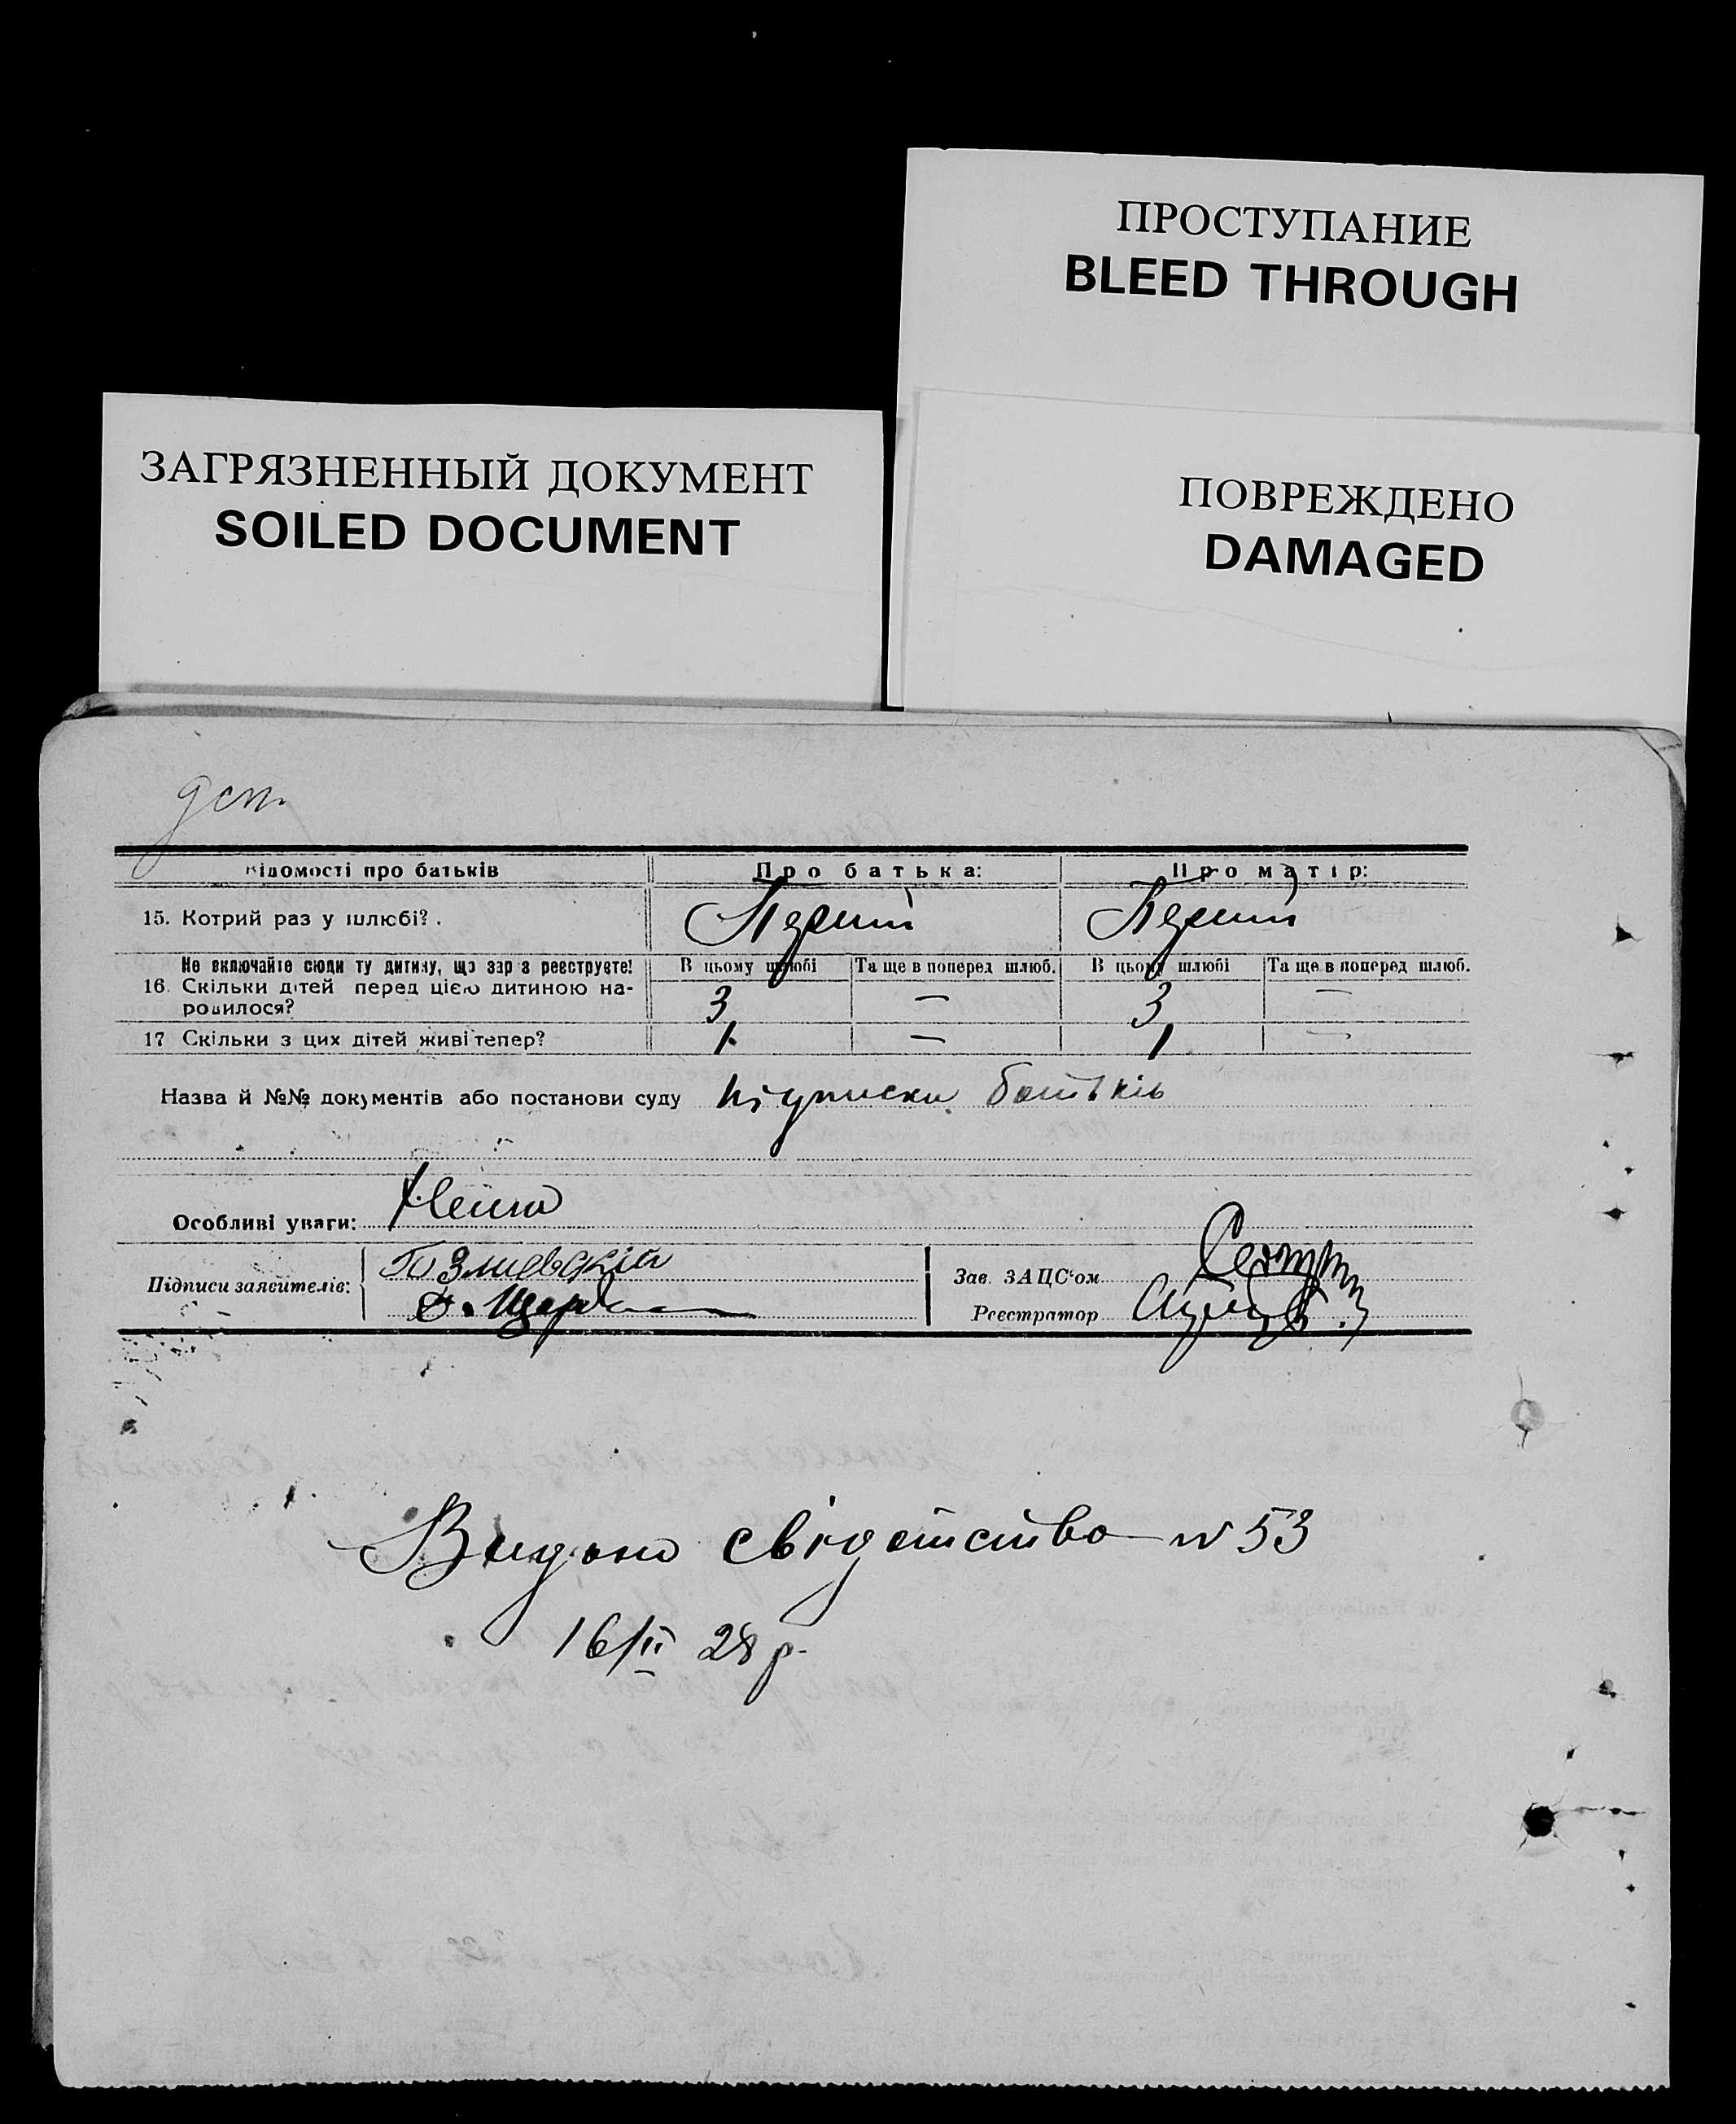 ПРОСТУПАНИЕ
BLEED THROUGH
ЗАГРЯЗНЕННЫЙ ДОКУМЕНТ
SOILED DOCUMENT
ПОВРЕЖДЕНО
DAMAGED
Відомості про батьків
Про батька:
Про матір:
15. Котрий раз у шлюбі?.
Перший
Перший
Не включайте сюди ту дитину, що зараз реєструєте!
16. Скільки дітей перед цією дитиною на-
родилося?
В цьому шлюбі
Та ще в поперед шлюб.
В цьому шлюбі
Та ще в поперед шлюб.
3
—
3
—
17 Скільки з цих дітей живі тепер?
1
—
1
—
Назва й №№ документів або постанови суду підписки батьків
Особливі уваги: Нема
Підписи заявителів:
Зав. ЗАЦС'ом
Реєстратор
Видано свідоцтво № 53
16/II 28 р.